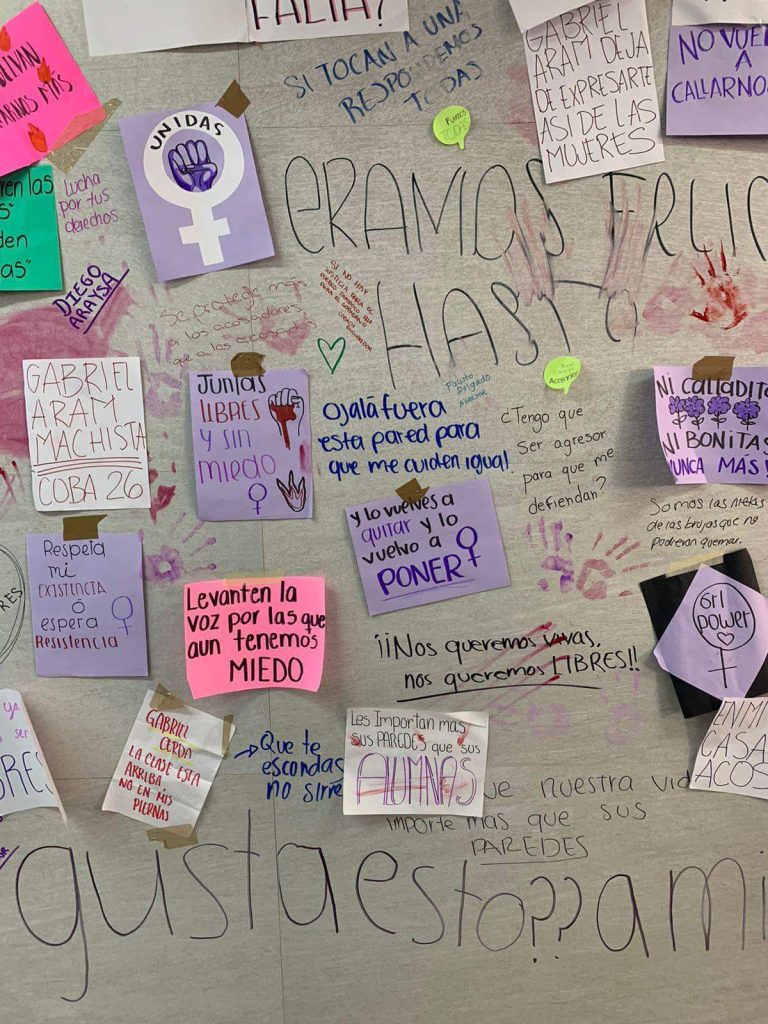 FALTA?
SI TOCAN A UNA
RESPONDEMOS
TODAS
GABRIEL
ARAM DEJA
DE EXPRESARTE
ASI DE LAS
MUJERES
NO
A
CALLARNO
MÁS
UNIDAS
TODAS
Lucha
por tus
derechos
ren las
den
as"
ERAMOS
HASTA
DIEGO
ARAYSA
Se protege más
a los acosadores
que a las acosadas
SI NO HAY
JUSTICIA PARA EL
PARA EL GOBIERNO
Fausto
Delgado
Acosador
GABRIEL
ARAM
MACHISTA
COBA 26
JUNTAS
LIBRES
y sin
miedo
Ojalá fuera
esta pared para
que me cuiden igual!
¿Tengo que
ser agresor
para que me
defiendan?
NI CALLADITA
NI BONITAS
NUNCA MÁS!
y lo vuelves a
quitar y lo
vuelvo a
PONER
Somos las nietas
de las brujas que no
pudieron quemar.
Respeta
mi
EXISTENCIA
ó
espera
Resistencia
RES
Levanten la
voz por las que
aun tenemos
MIEDO
¡¡Nos queremos vivas,
nos queremos LIBRES!!
Grl
power
ya
ser
BRES
GABRIEL
CERDA
LA CLASE ESTA
ARRIBA
NO EN MIS
PIERNAS
→Que te
escondas
no sirve
Les Importan mas
sus PAREDES que sus
ALUMNAS
EN MI
CASA
ACOS
ue nuestra vid
importe mas que sus
PAREDES
gusta esto?? a mi